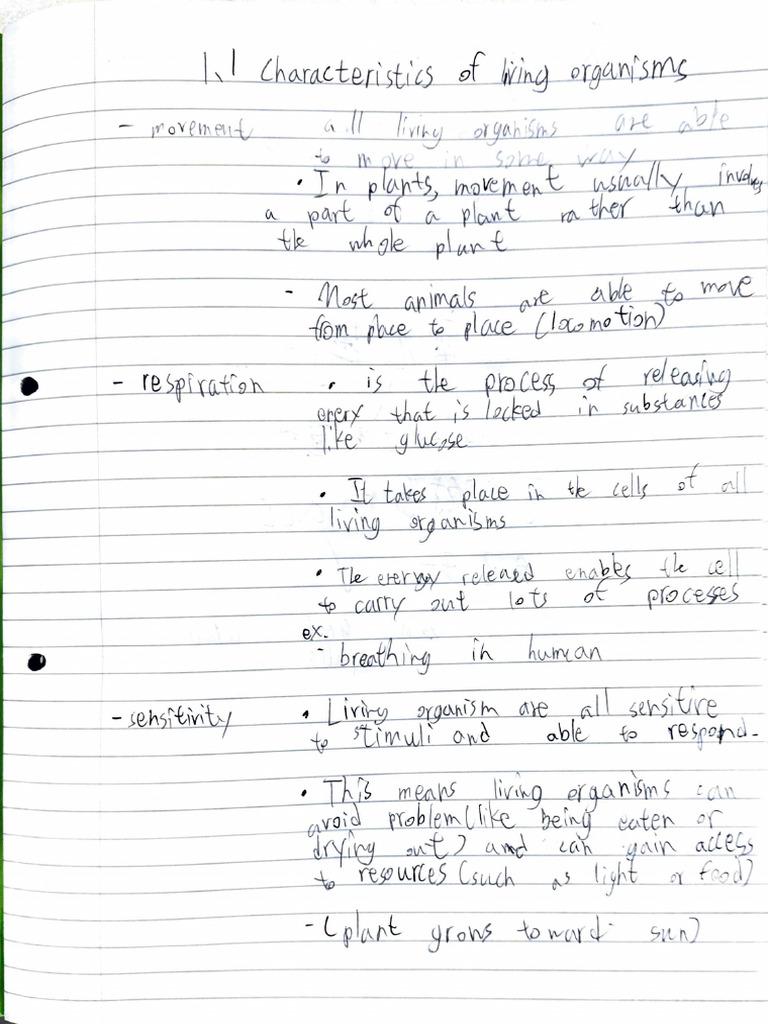 1.1 Characteristics of living organisms
- movement all living organisms are able
to move in some way
• In plants, movement usually involves
a part of a plant rather than
the whole plant
- Most animals are able to move
from place to place (locomotion)
- respiration • is the process of releasing
enery that is locked in substances
like glucose
• It takes place in the cells of all
living organisms
• The energy released enables the cell
to carry out lots of processes
ex.
- breathing in human
- sensitivity • Living organism are all sensitive
to stimuli and able to respond.
• This means living organisms can
avoid problem (like being eaten or
drying out) and can gain access
to resources (such as light or food)
- (plant grows toward sun)